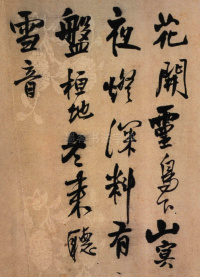 花開靈鳥下山寅
夜燈深料有
盤桓地冬來聽
雪音